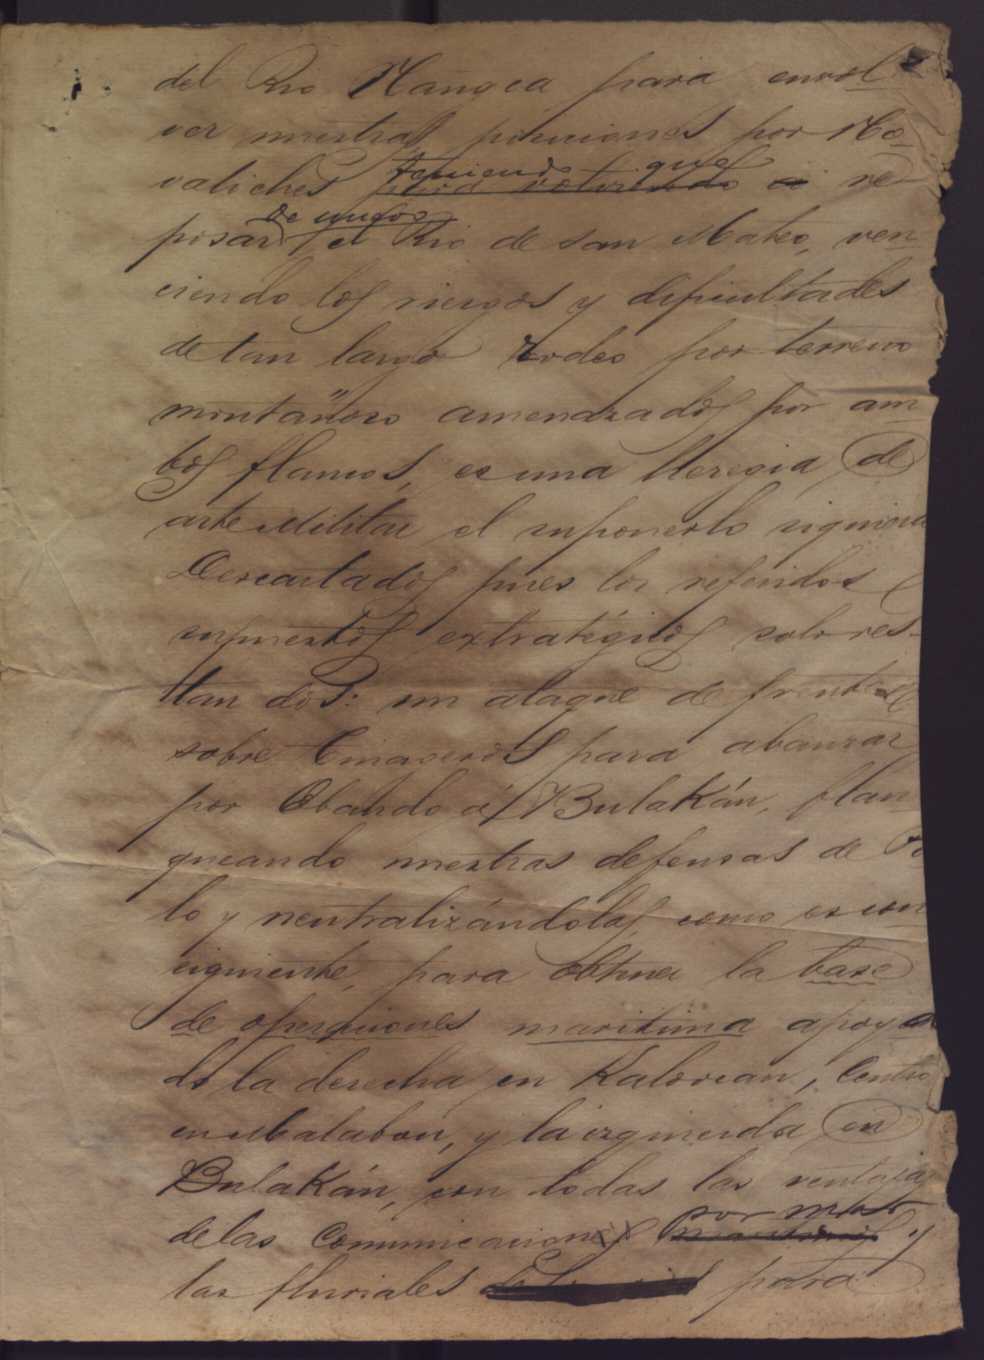 del Rio Nangca para envol
ver nuestras posiciones por No
valiches teniendo que re
pasar de nuevo el Rio de San Mateo, ven
ciendo los riesgos y dificultades
de tan largo rodeo por terreno
montañoso amenazados por am
bos flancos, es una heregia de
arte Militar el suponerlo siquiera
Descartados pues los referidos
supuestos extratégicos solo res-
tan dos: un ataque de frente
sobre Tinageros para abanzar
por Obando á Bulakán, flan
queando nuestras defensas de Po
lo y neutralizándolas, como es con
siguiente, para obtener la base
de operaciones maritima apoyan
do la derecha en Kalookan, Centro
en Malabon, y la izquierda en
Bulakán, con todas las ventajas
de las Comunicaciones por mar y
las fluviales para